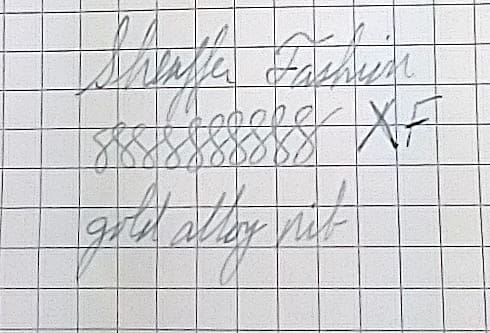 Sheaffer Fashion
8888888888 XF
gold alloy nib